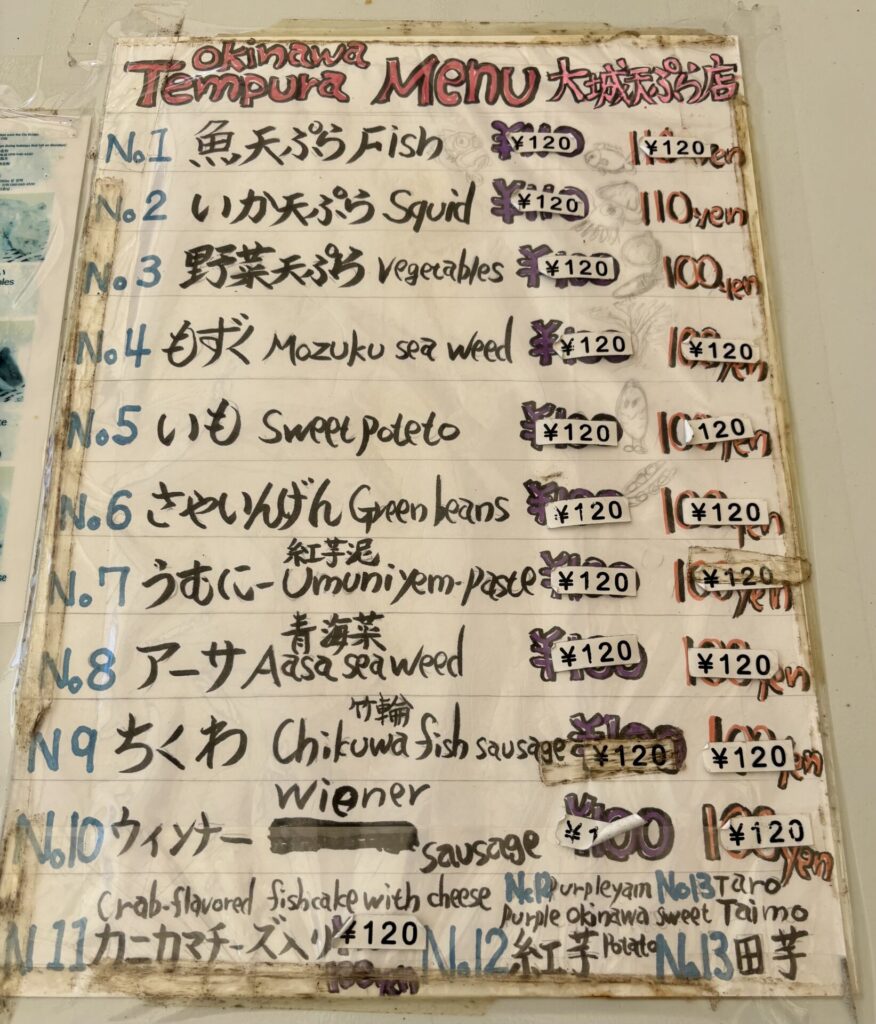 Okinawa
Tempura Menu 大城天ぷら店
No.1 魚天ぷら Fish ¥120 ¥120
No.2 いか天ぷら Squid ¥120 110yen
No.3 野菜天ぷら vegetables ¥120 100yen
No.4 もずく Mozuku sea weed ¥120 ¥120
No.5 いも Sweet poteto ¥120 120
No.6 さやいんげん Green beans ¥120 ¥120
紅芋泥
No.7 うむにー Umuni yem-paste ¥120 ¥120
青海菜
No.8 アーサ Aasa sea weed ¥120 ¥120
竹輪
N9 ちくわ Chikuwa fish sausage ¥120 ¥120
wiener
No.10 ウィンナー sausage ¥100 ¥120
Crab-flavored fishcake with cheese No.12 purple yam No.13 Taro
purple okinawa sweet Taimo
N11 カニカマチーズ入り ¥120 No.12 紅芋 Potato No.13 田芋
100yen